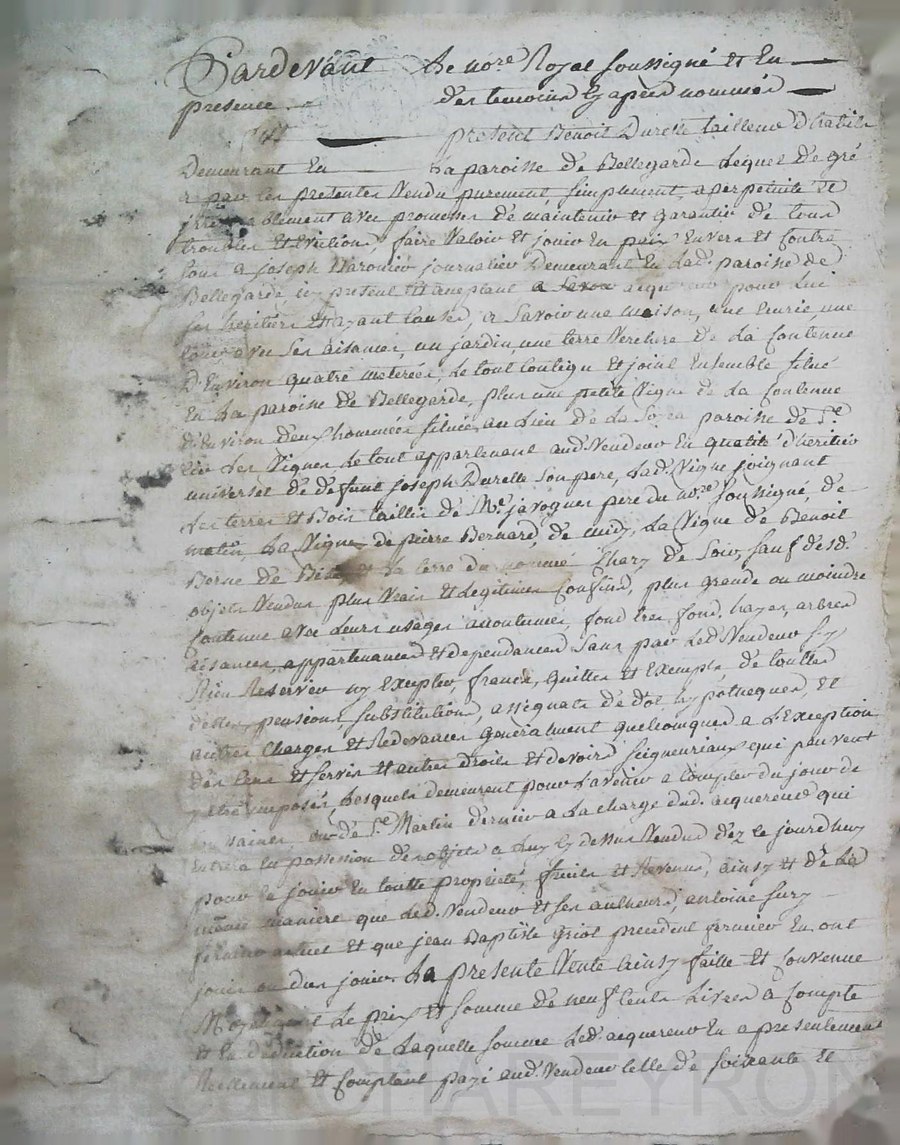 Pardevant Le nore Royal soussigné et En
presence des temoins cy apres nommés
fut present Benoit Durelle tailleur d'habits
Demeurant En La paroisse de Bellegarde Lequel de gré
a par les presentes Vendu purement, simplement, a perpetuité et
irrevocablement avec promesse de maintenir et garantir de tous
troubles et Evictions, faire Valoir et jouir En paix Envers et Contre
tous a Joseph journalier Demeurant En Lad. paroisse de
Bellegarde icy present et acceptant acquereur pour Lui
ses heritiers et ayant Causes, a Savoir une maison, une Ecurie, une
cour avec ses aisances, un jardin, une terre Verchere de La Contenue
D'Environ quatre meterées, Le tout Contigu et joint Ensemble situé
En La paroisse de Bellegarde, plus une petite Vigne de La Contenue
d'Environ deux hommées située au Lieu de paroisse de St
Les Vignes Le tout appartenant aud. Vendeur En qualité d'heritier
universel de defunt Joseph Durelle Son pere, Lad. Vigne joignant
Les terres et Bois taillis de Mr. javogues pere du nore soussigné, de
matin La Vigne de pierre Bernard, de midy La Vigne de Benoit
de et La terre du nommé de Soir, sauf desd.
objets Vendus plus Vrais et Legitimes Confins, plus grande ou moindre
Contenue avec Leurs usages accoutumés, fond tres fond, hayes, arbres
aisances, appartenances et dependances Sans par Led. Vendeur s'y
Rien Reserver ny Excepter, francs, quittes et Exempts de touttes
dettes, pensions, substitutions, assignats de dot, hypotheques, et
autres Charges et Redevances generalement quelconques a L'Exception
des Cens et servis et autres Droits et devoirs seigneuriaux qui peuvent
y etre imposés, Lesquels demeurent pour L'avenir a Compter du jour de
de St. Martin dernier a La charge dud. acquereur qui
Entrera En possession des objets a Luy cy dessus Vendus dez le jourdhuy
pour en jouir En toutte proprieté, fruits et Revenus, ainsy et de La
même maniere que Led. Vendeur et ses autheurs, antoine
fermier actuel et que jean Baptiste griot precedent fermier En ont
joui ou du jouir. La presente Vente ainsy faitte et Convenue
Moyennant Le prix et somme de neuf Cents Livres a Compte
et En deduction de Laquelle somme Led. acquereur En a presentement
Reellement et Comptant payé aud. Vendeur Celle de soixante et
CHAREYRON